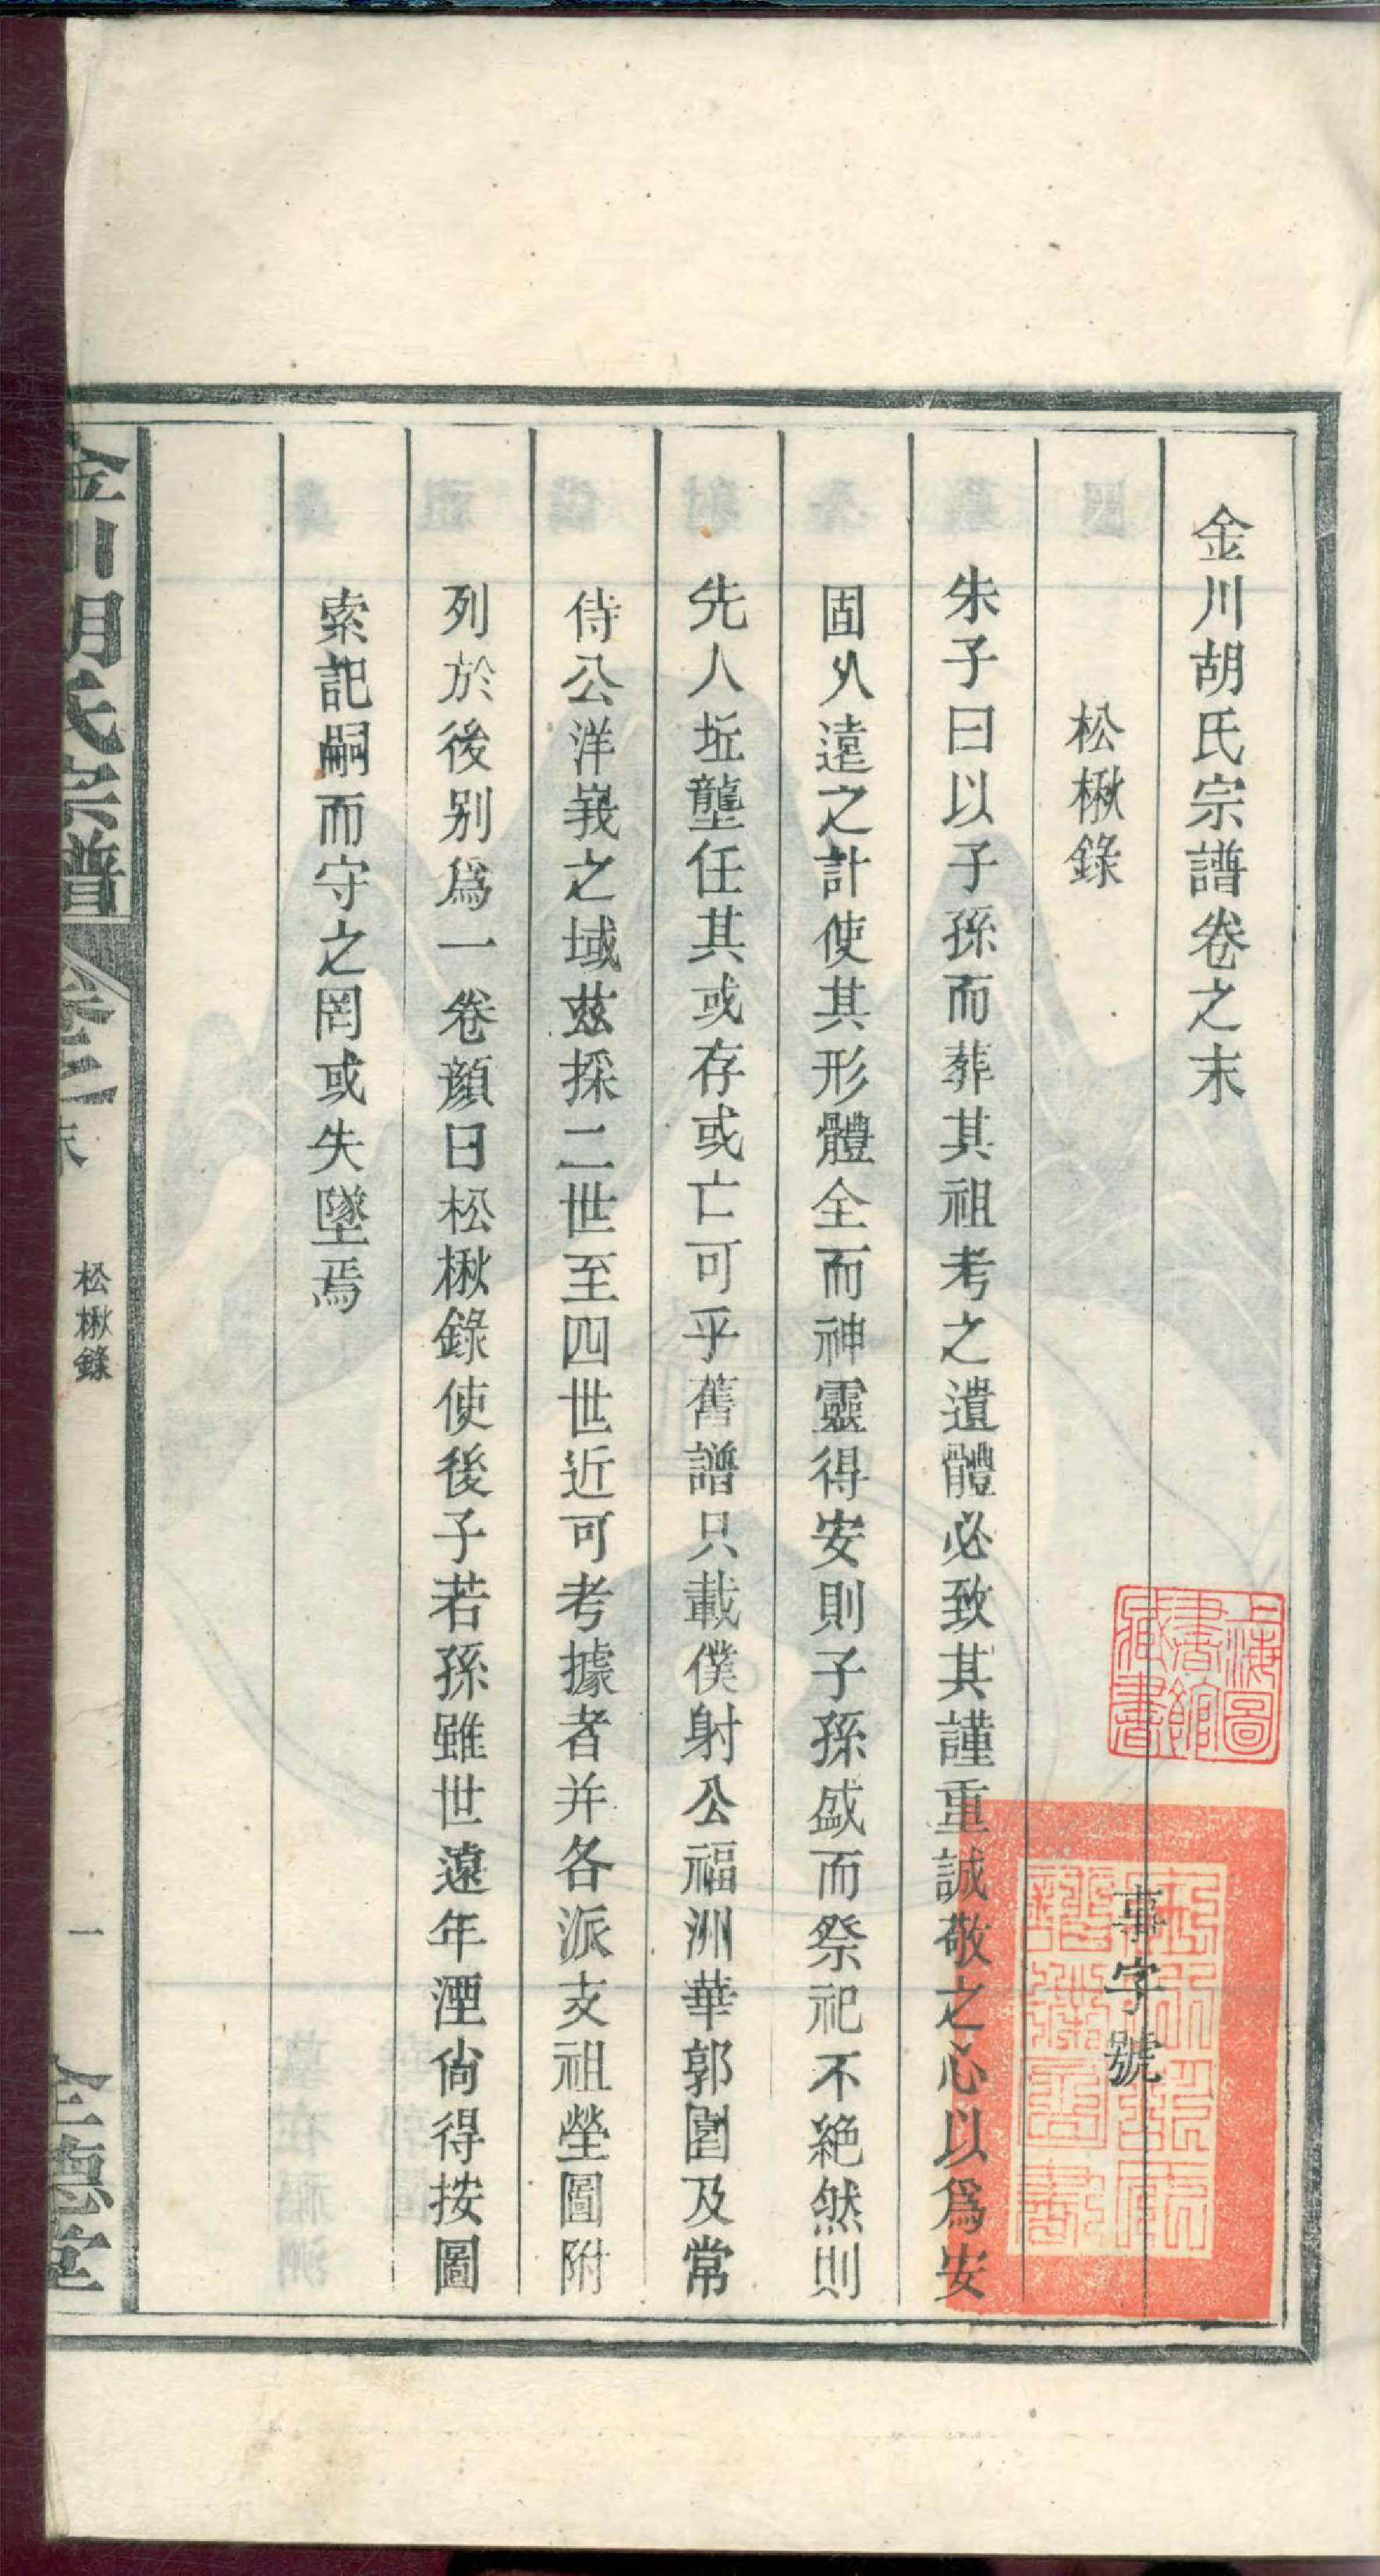 金川胡氏宗譜卷之末
事字號
松楸錄
朱子曰以子孫而葬其祖考之遺體必致其謹重誠敬之心以爲安
固久遠之計使其形體全而神靈得安則子孫盛而祭祀不絶然則
先人坵壟任其或存或亡可乎舊譜只載僕射公福洲華郭園及常
侍公洋峩之域茲採二世至四世近可考據者并各派支祖塋圖附
列於後别爲一卷顔曰松楸錄使後子若孫雖世遠年湮尙得按圖
索記嗣而守之罔或失墜焉
金川胡氏宗譜
卷之末
松楸錄
一
全德堂
上海圖書館藏書